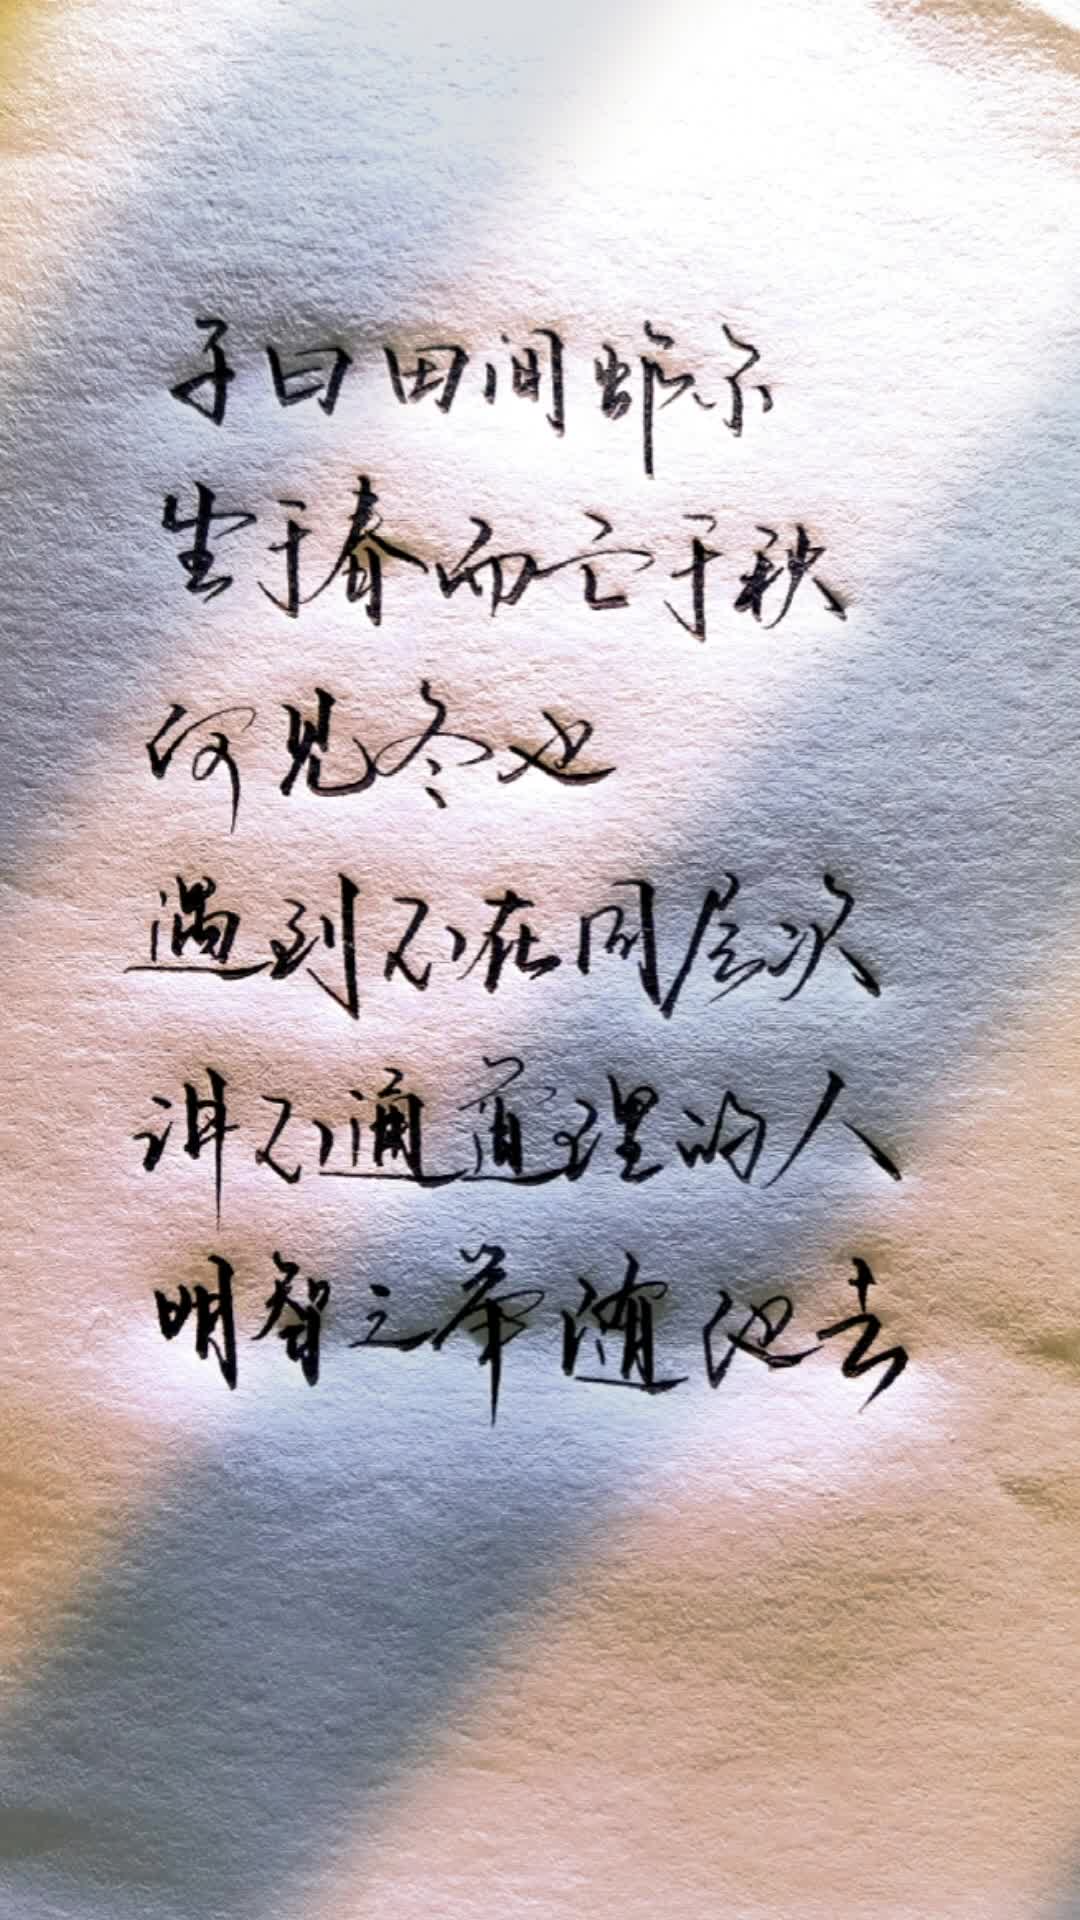 子曰田间蚱尔
生于春而亡于秋
何见冬也
遇到不在同层次
讲不通道理的人
明智之举随他去